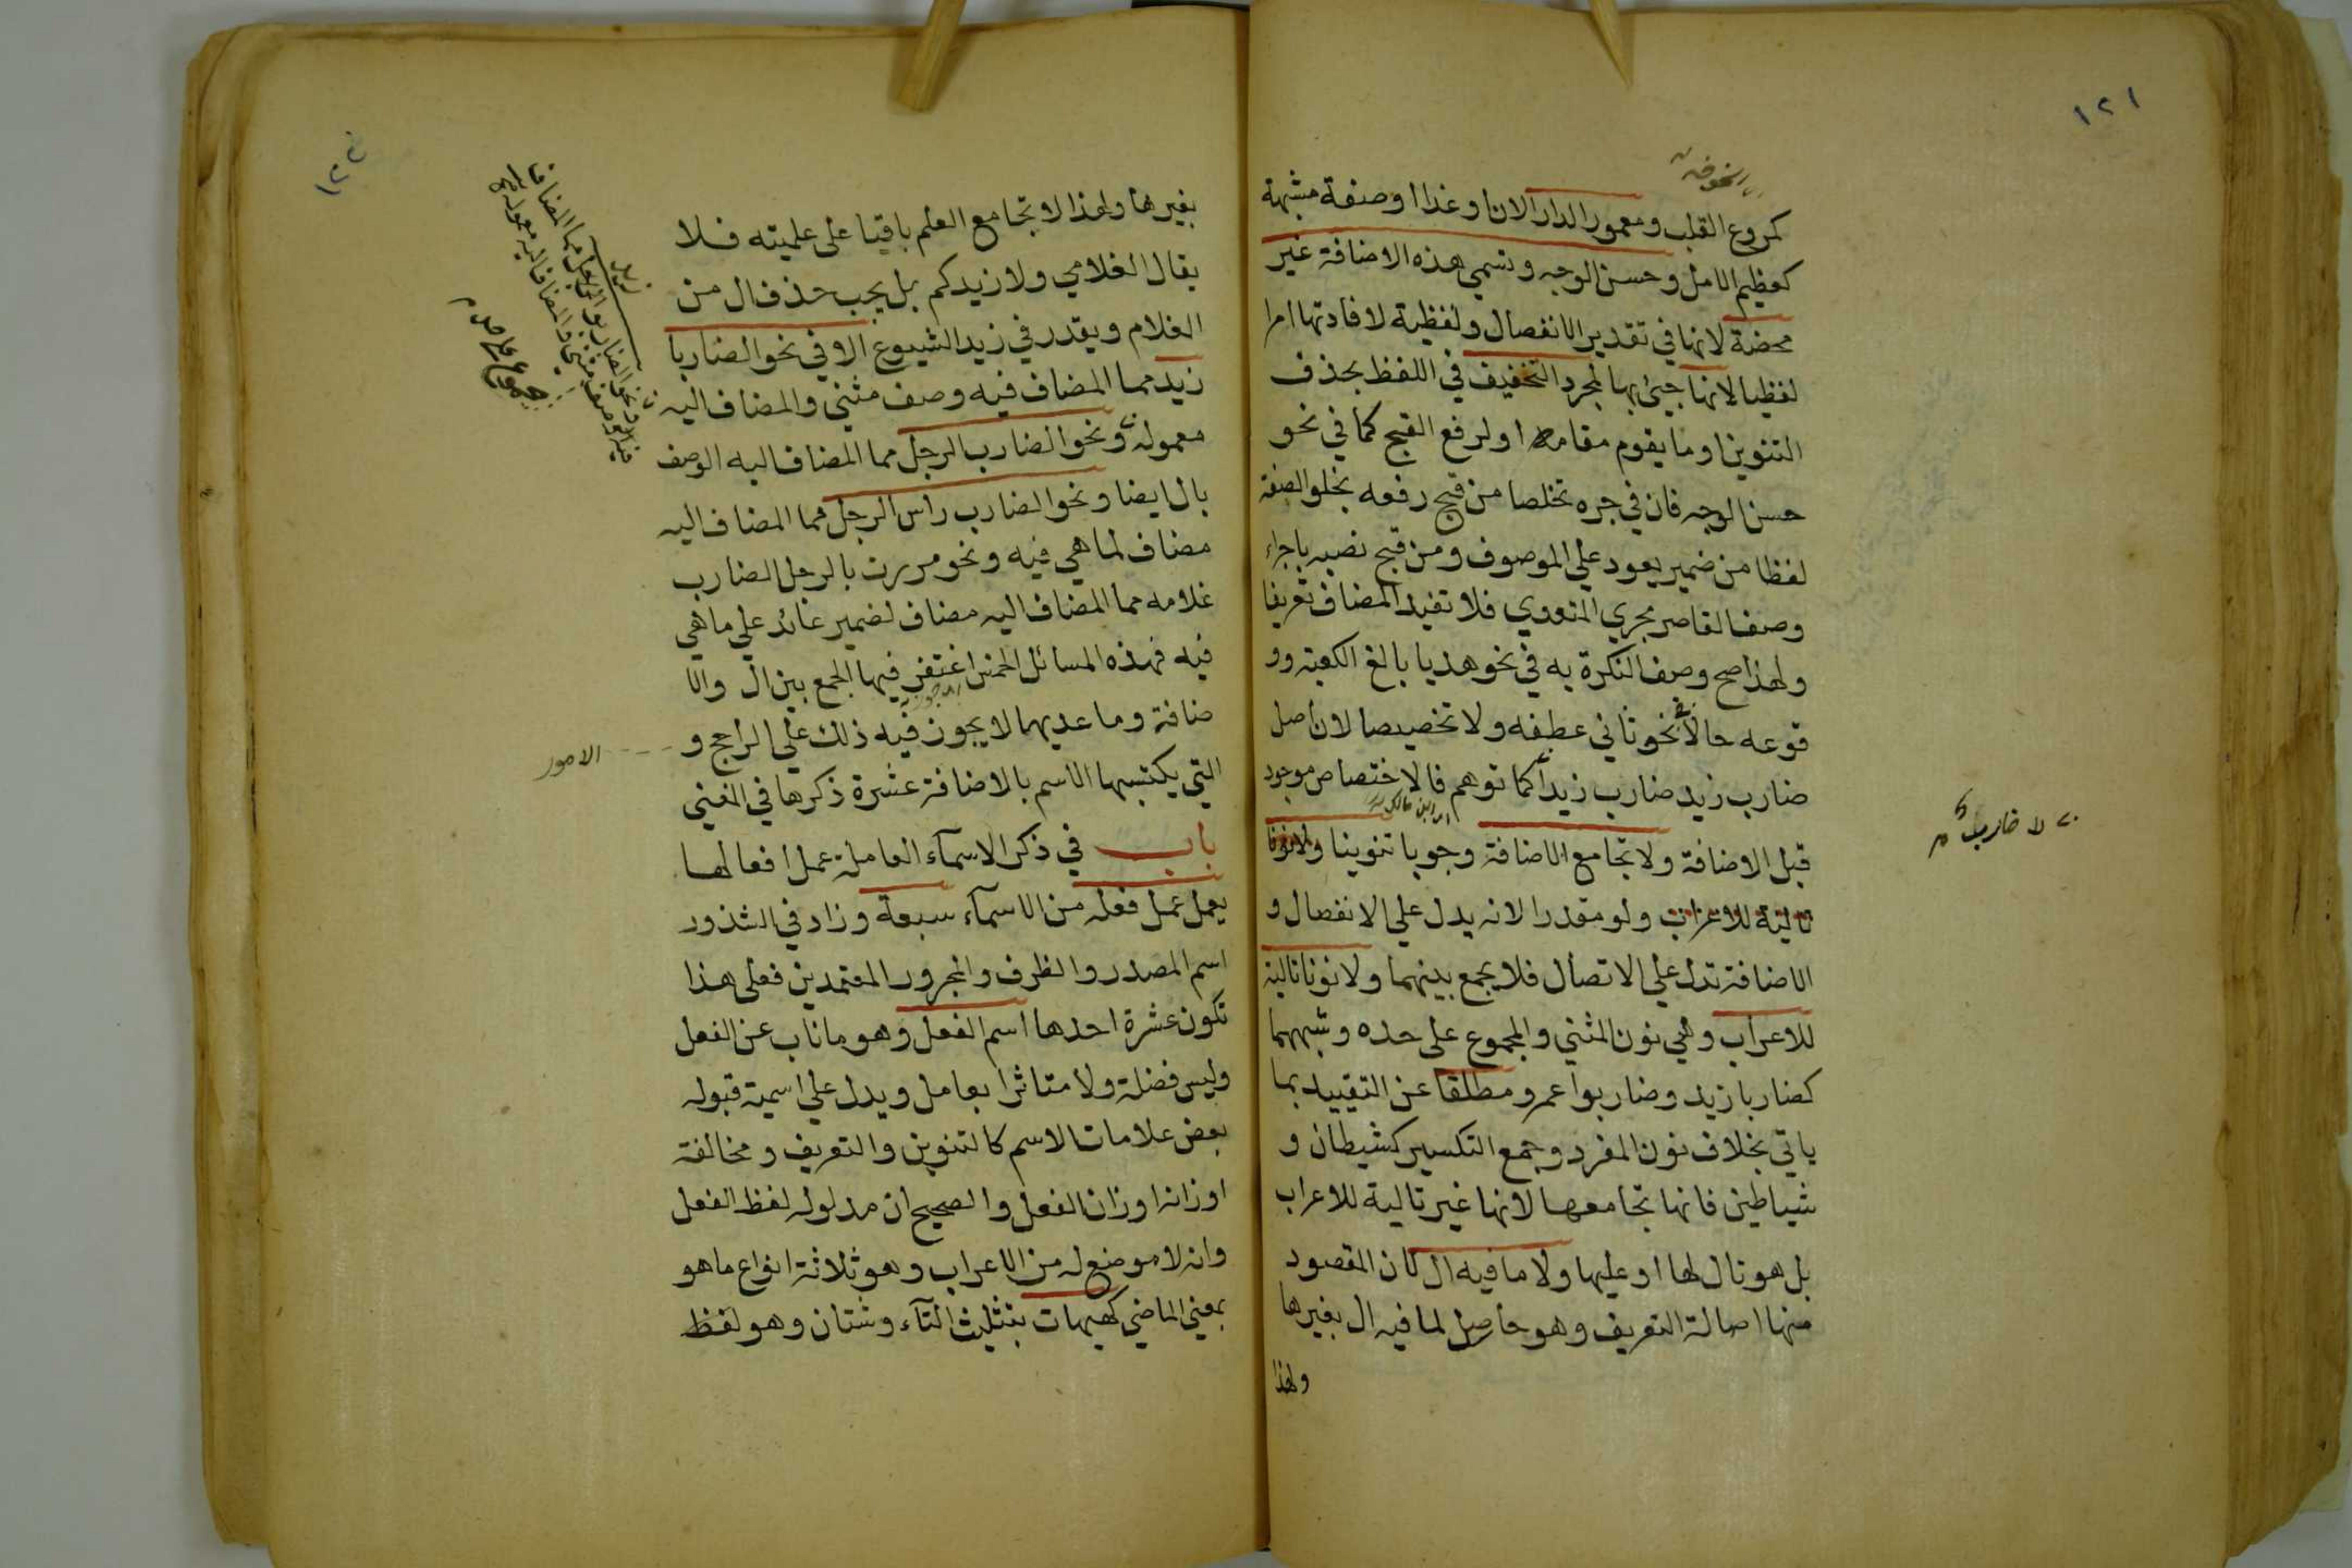 ١٢١
كمروع القلب ومعمور الدار الان او غدا او صفة مشبهة
كعظيم الامل وحسن الوجه وتسمي هذه الاضافة غير
محضة لانها في تقدير الانفصال ولفظية لافادتها امرا
لفظيا لانها جيئ بها لمجرد التخفيف في اللفظ بحذف
التنوين او ما يقوم مقامه او لرفع القبح كما في نحو
حسن الوجه فان في جره تخلصا من قبح رفعه بخلو الصفة
لفظا من ضمير يعود علي الموصوف ومن قبح نصبه باجراء
وصف القاصر مجري المتعدي فلا تفيد المضاف تعريفا
ولهذا صح وصف النكرة به في نحو هديا بالغ الكعبة وو
قوعه حالا في نحو ثاني عطفه ولا تخصيصا لان اصل
ضارب زيد ضارب زيدا كما توهم فالاختصاص موجود
اي ابن مالك
لا ضارب
قبل الاضافة ولا تجامع الاضافة وجوبا تنوينا ولا نونا
تالية للاعراب ولو مقدرا لانه يدل علي الانفصال و
الاضافة تدل علي الاتصال فلا يجمع بينهما ولا نونا تالية
للاعراب وهي نون المثني والمجموع على حده وشبههما
كضاربا زيد وضاربوا عمرو مطلقا عن التقييد بما
ياتي بخلاف نون المفرد وجمع التكسير كشيطان و
شياطين فانها تجامعها لانها غير تالية للاعراب
بل هو تال لها او عليها ولا ما فيه ال لان المقصود
منها اصالة التعريف وهو حاصل لما فيه ال بغيرها
ولهذا
١٢٢
بغيرها ولهذا لا تجامع العلم باقيا على علميته فلا
يقال الغلامي ولا زيدكم بل يجب حذف ال من
الغلام ويقدر في زيد الشيوع الا في نحو الضاربا
زيد مما المضاف فيه وصف مثني والمضاف اليه
معموله ونحو الضارب الرجل مما المضاف اليه الوصف
بال ايضا ونحو الضارب راس الرجل مما المضاف اليه
مضاف لما هي فيه ونحو مررت بالرجل الضارب
غلامه مما المضاف اليه مضاف لضمير عائد علي ما هي
فيه فهذه المسائل الخمس اغتفر فيها الجمع بين ال والا
ضافة وما عديهما لا يجوز فيه ذلك علي الراجح و
الامور
التي يكتسبها الاسم بالاضافة عشرة ذكرها في المغني
باب في ذكر الاسمآء العاملة عمل افعالها
يعمل عمل فعله من الاسمآء سبعة وزاد في الشذور
اسم المصدر والظرف والمجرور المعتمدين فعلى هذا
تكون عشرة احدها اسم الفعل وهو ما ناب عن الفعل
وليس فضلة ولا متاثرا بعامل ويدل علي اسمية قبوله
بعض علامات الاسم كالتنوين والتعريف ومخالفة
اوزانه اوزان الفعل والصحيح ان مدلوله لفظ الفعل
وانه لا موضع له من الاعراب وهو ثلاثة انواع ما هو
بمعني الماضي كهيهات بتثليث التآء وشتان وهو لفظ